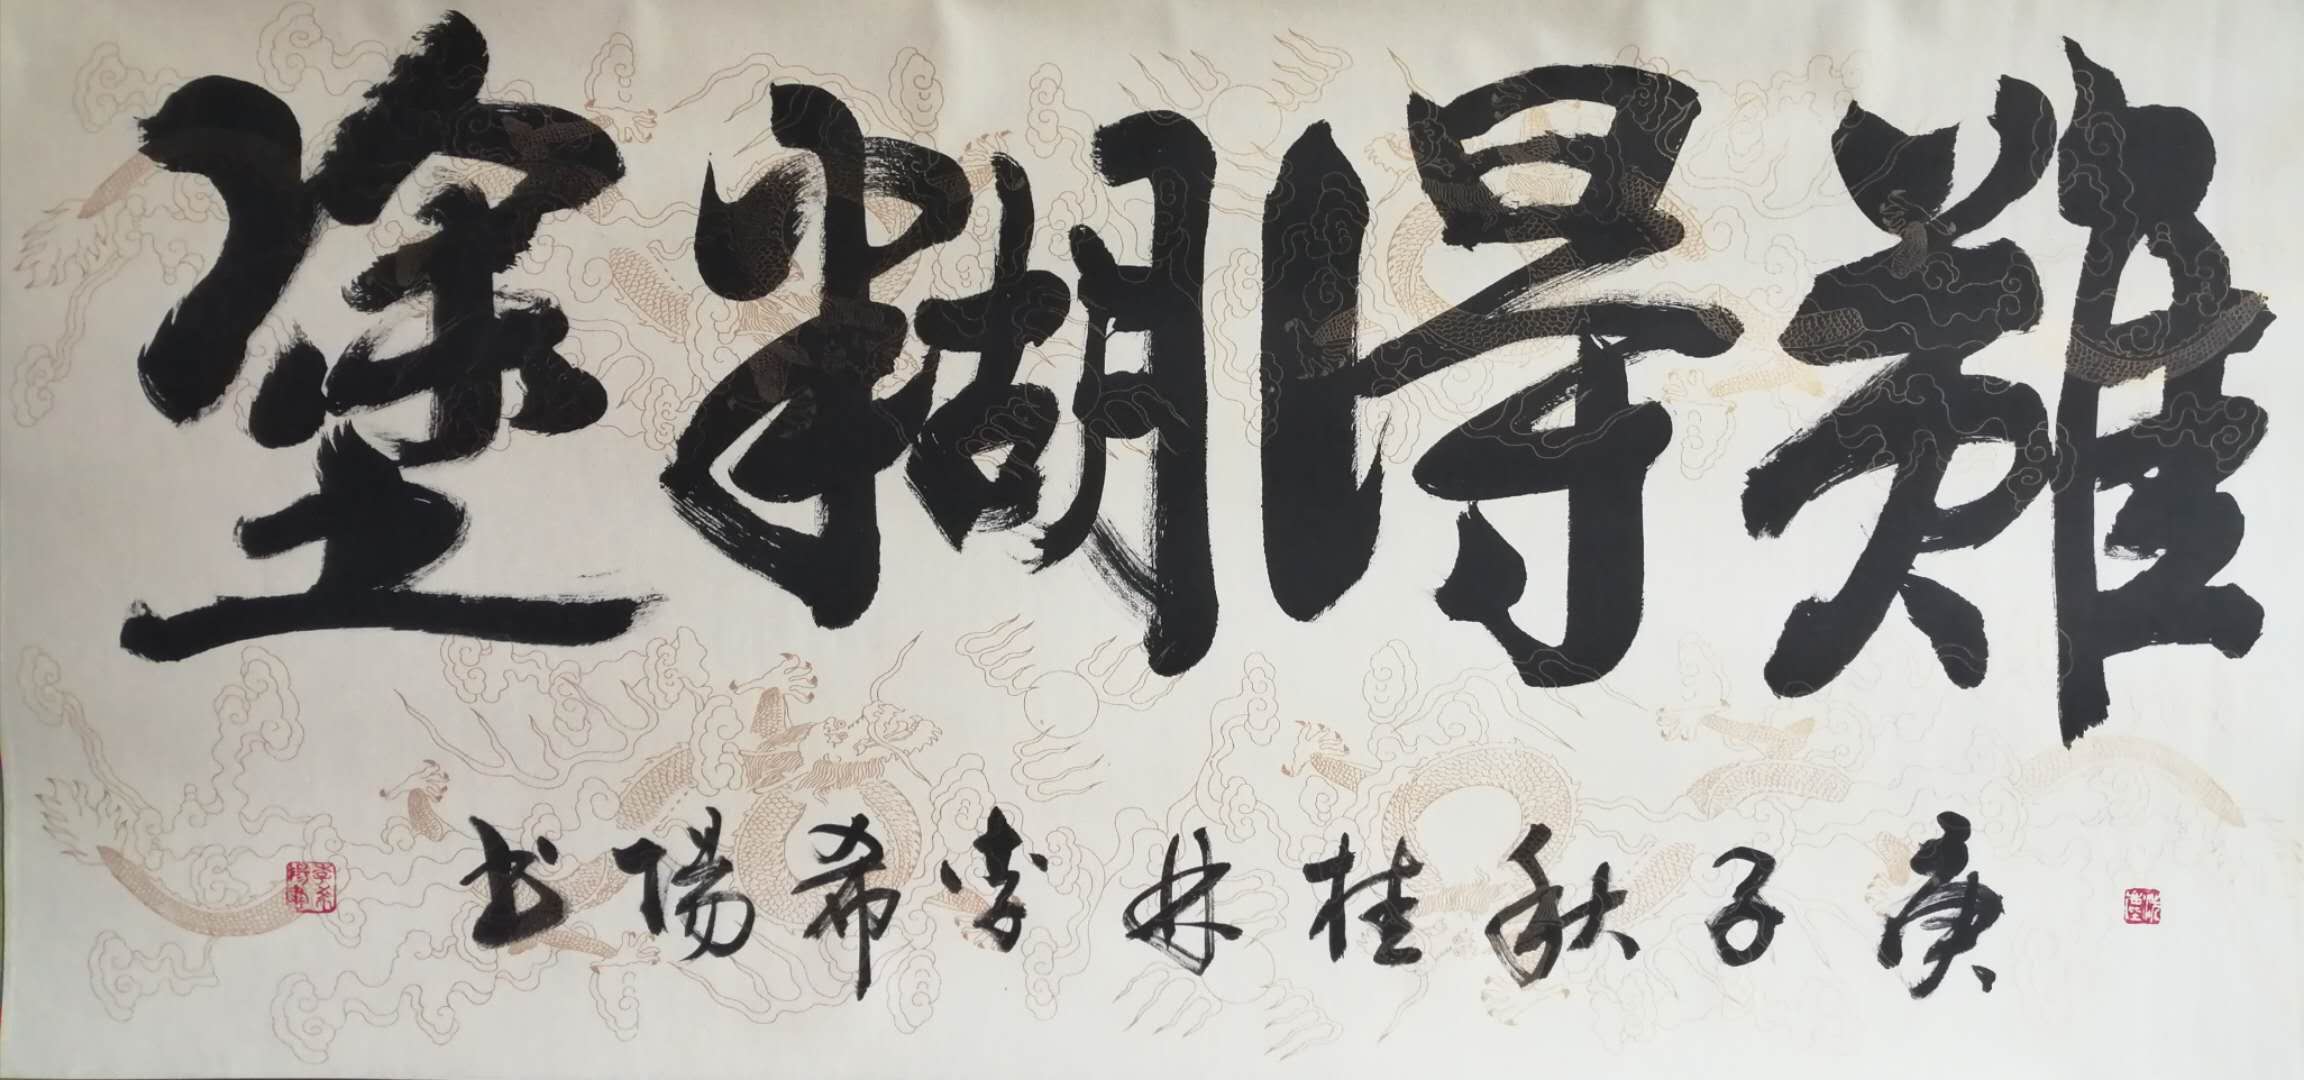 難得糊塗
庚子秋桂林李希陽书